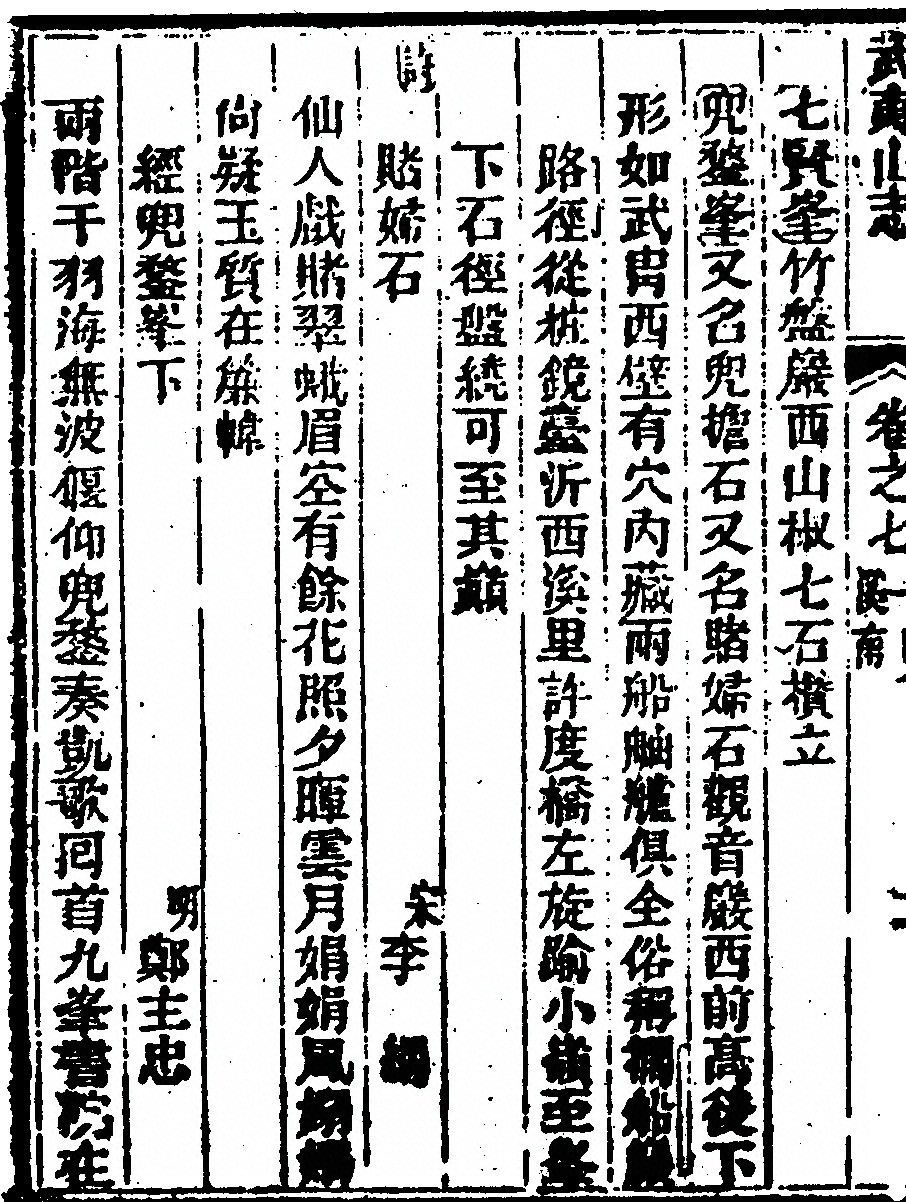 武夷山志 卷之七 溪南
七賢峯竹盤巖西山椒七石攢立
兜鍪峯又名兜擔石又名賭婦石觀音巖西前高後下
形如武冑西壁有穴內藏兩船舳艫俱全俗稱擱船
路徑從粧鏡臺沂西溪里許度橋左旋踰小嶺至峯
下石徑盤繞可至其巔
詩
賭婦石 宋李綱
仙人戲賭翠蛾眉空有餘花照夕暉雲月娟娟風
尙疑玉質在簾幃
經兜鍪峯下 明鄭主忠
兩階干羽海無波偃仰兜鍪奏凱歌回首九峯書院在